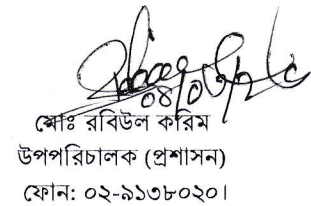 মোঃ রবিউল করিম
উপপরিচালক (প্রশাসন)
ফোন: ০২-৯১৩৮০২০।